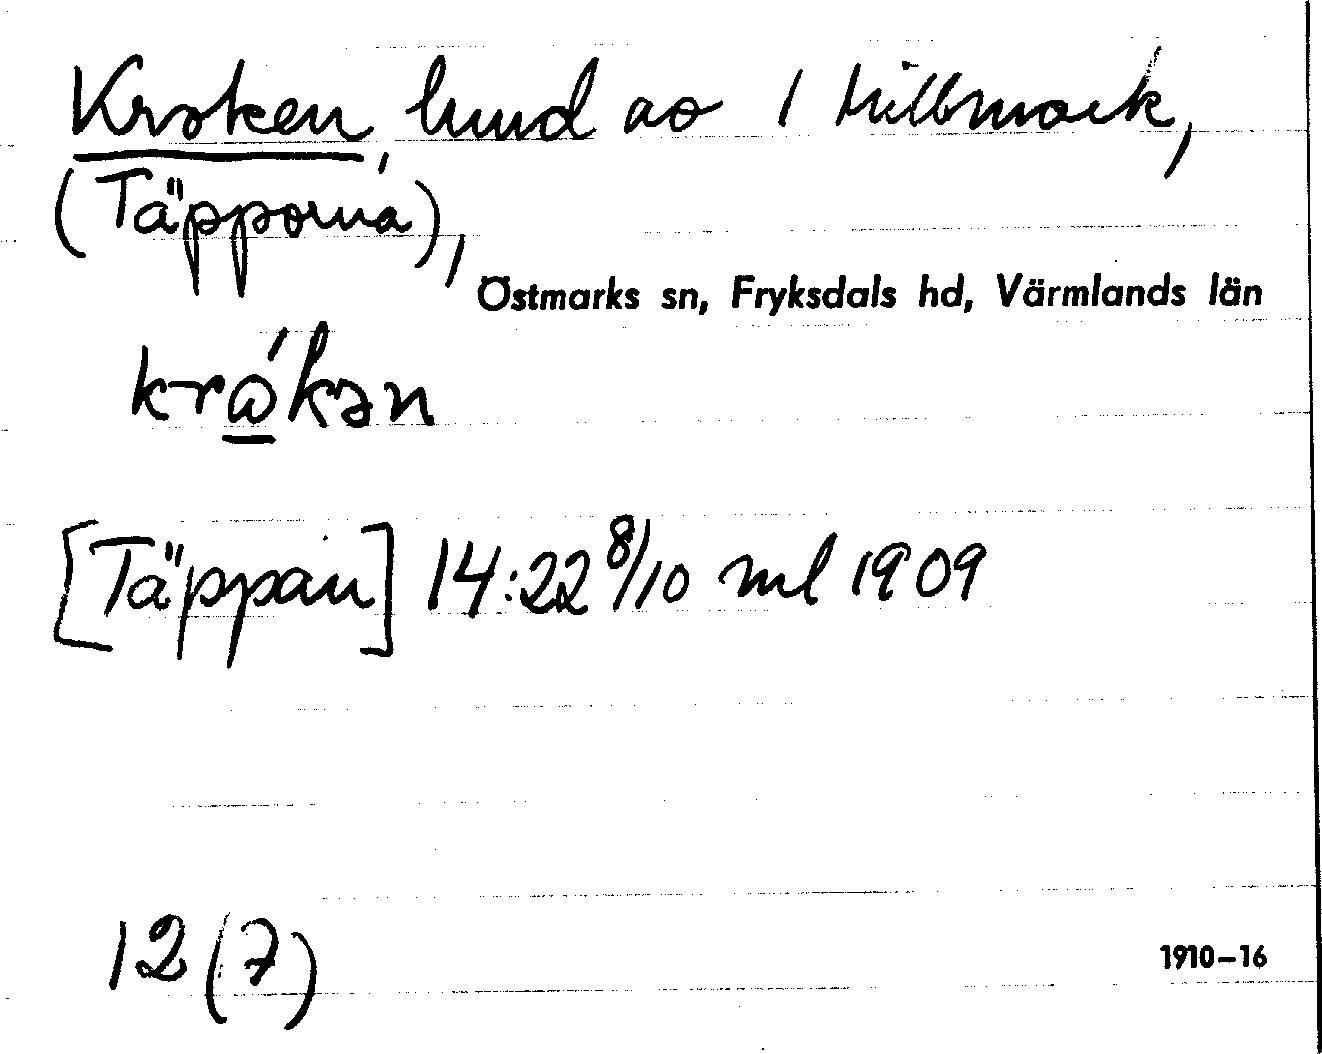 Kroken, lund av 1 Millomark,
(Täpporna),
Östmarks sn, Fryksdals hd, Värmlands län
krώkən
[Täppan] 14:22 8/10 ml 1909
12 (7)
1910–16